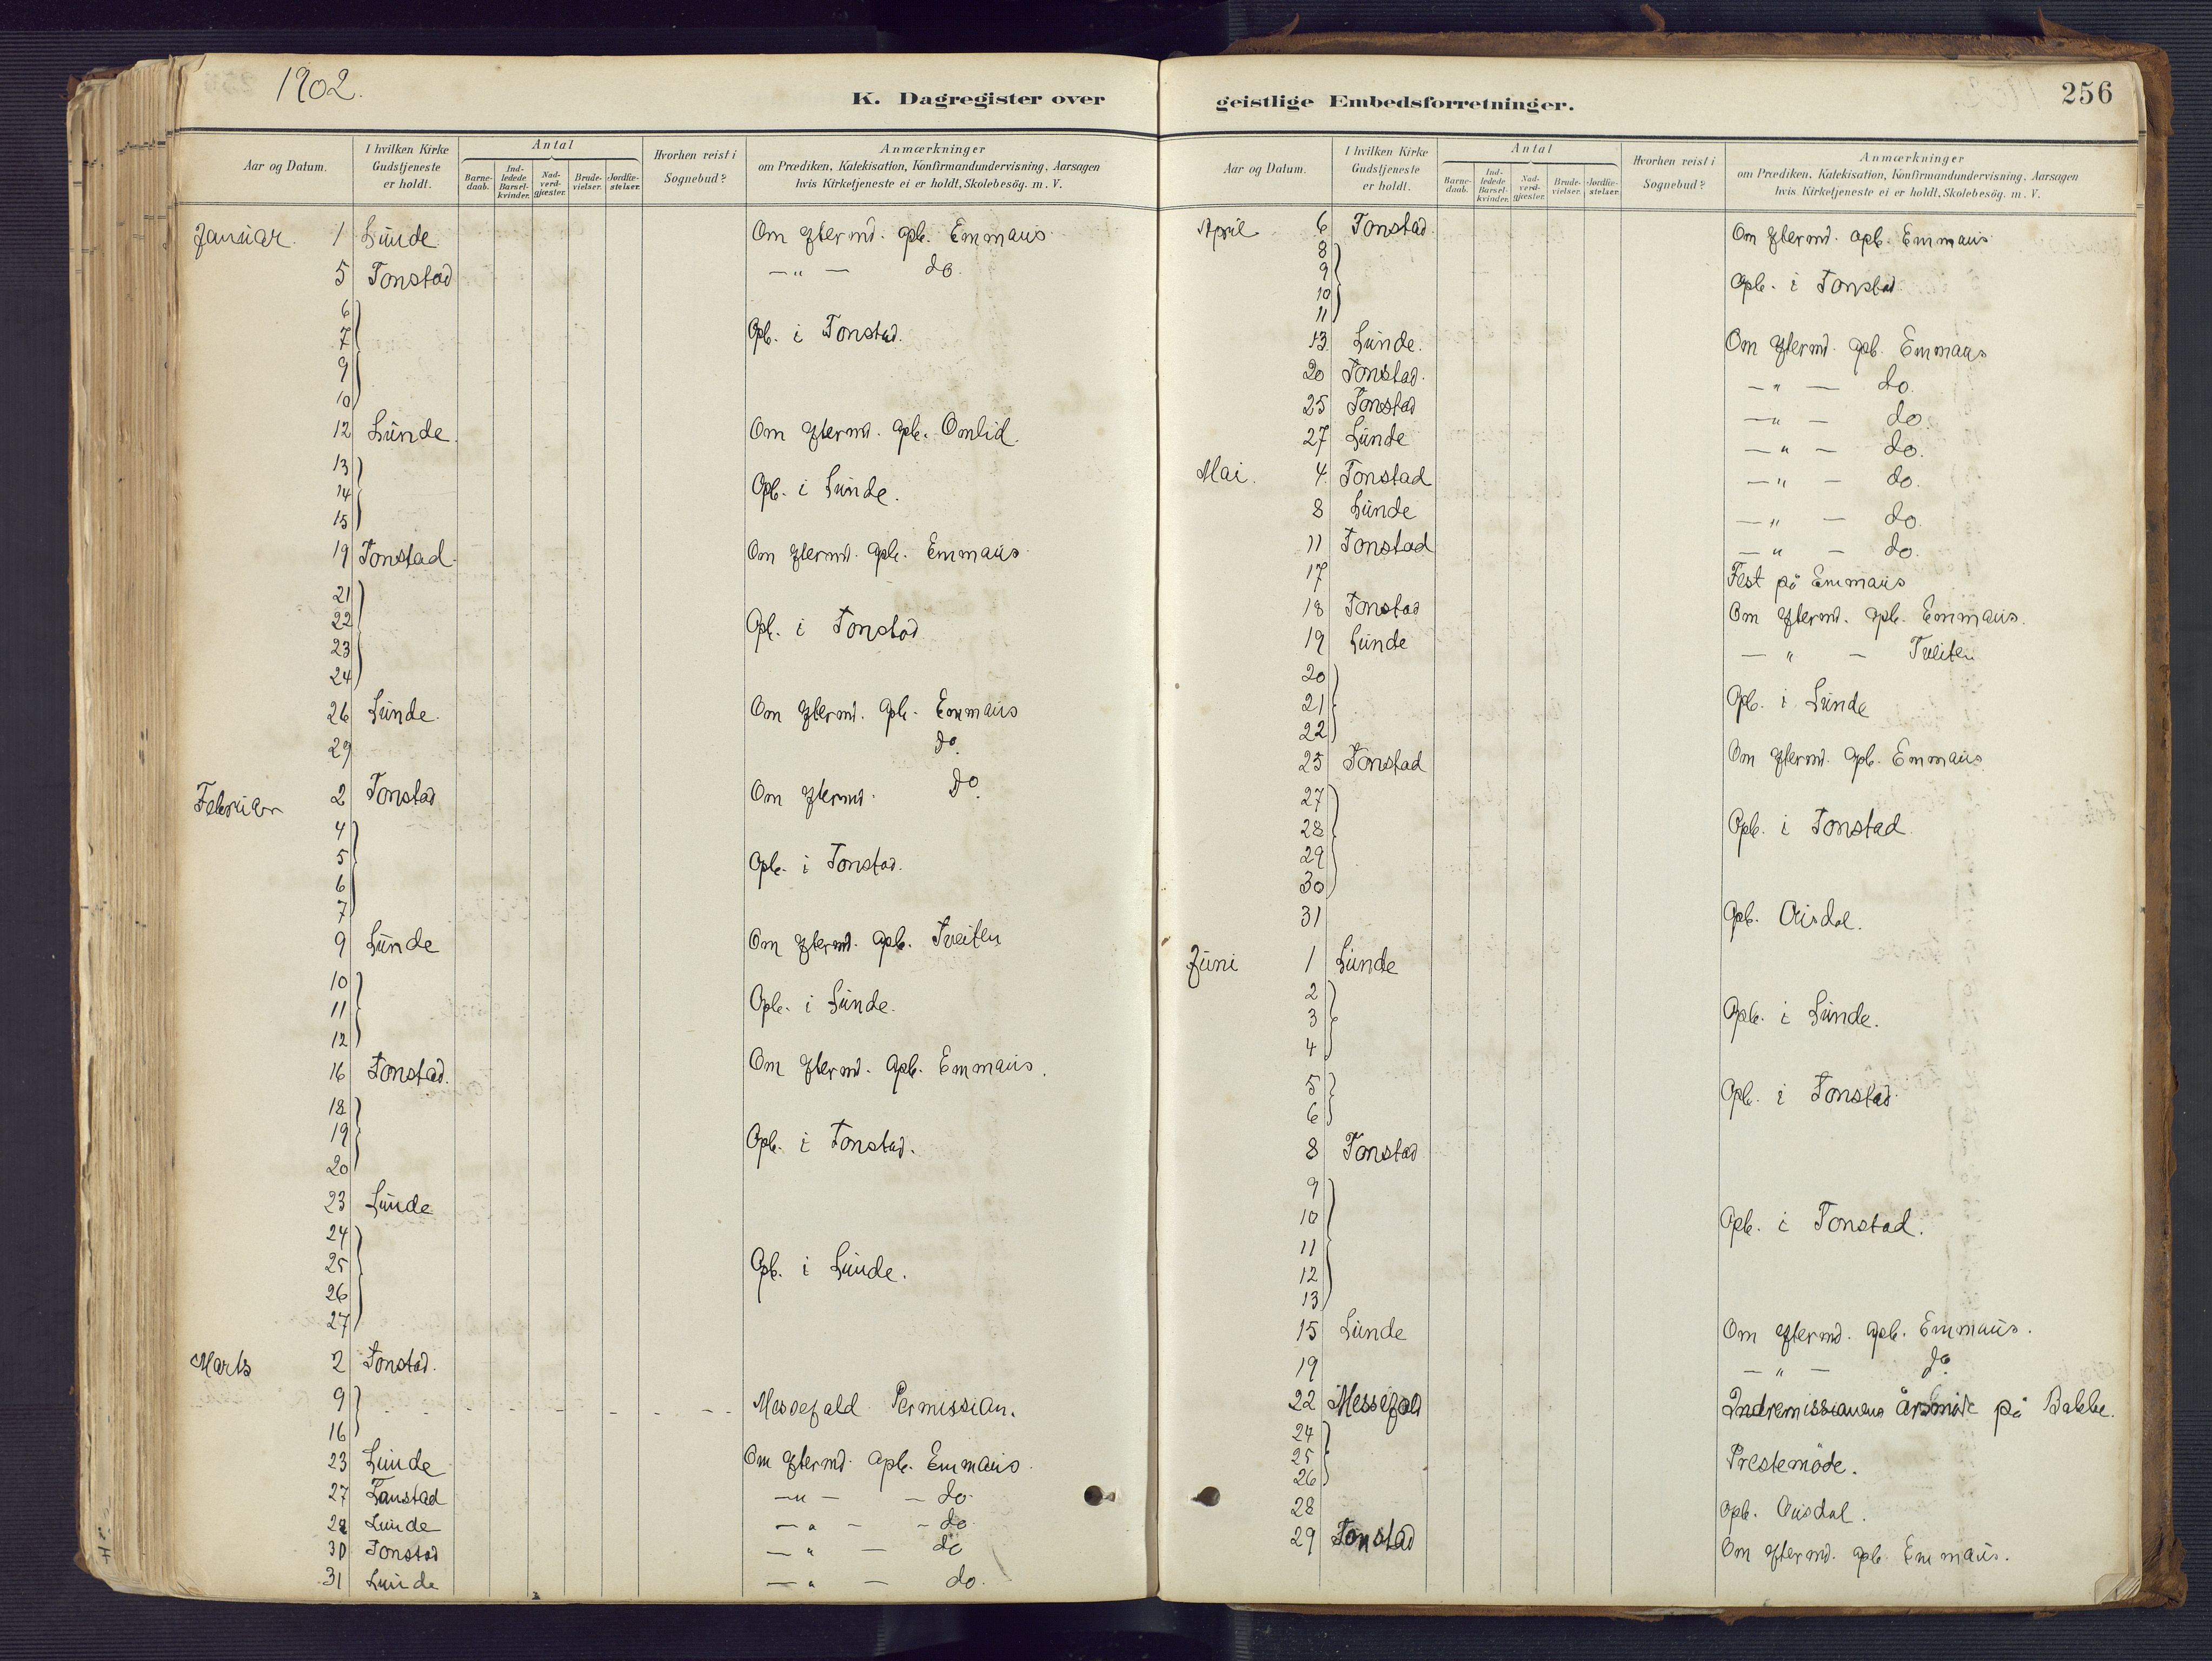 1902.
K. Dagregister over
Aar og Datum.
I hvilken Kirke Gudstjeneste er holdt.
Antal
Barnedaab.
Indledede Barselkvinder.
Nadverdgjæster.
Brudevielser.
Jordfæstelser.
Hvorhen reist i Sognebud?
Anmærkninger
om Prædiken, Katekisation, Konfirmandundervisning, Aarsagen
hvis Kirketjeneste ei er holdt, Skolebesög. m. V.
Januar. 1 Lunde Om eftermd. opb. Emmaus
5 Tonstad — " — do.
6
7 Opb. i Tonstad.
9
10
12 Lunde. Om eftermd. opb. Omlid.
13
14 Opb. i Lunde.
15
19 Tonstad. Om eftermd. opb. Emmaus.
21
22 Opb. i Tonstad
23
24
26 Lunde. Om eftermd. opb. Emmaus
29 do.
Februar 2 Tonstad Om eftermd. do.
4
5 Opb. i Tonstad.
6
7
9 Lunde Om eftermd. opb. Tveiten
10
11 Opb. i Lunde.
12
16 Tonstad. Om eftermd. opb. Emmaus.
18
19 Opb. i Tonstad.
20
23 Lunde
24
25 Opb. i Lunde.
26
27
Marts 2 Tonstad.
9 Messefald Permission.
16
23 Lunde Om eftermd. opb. Emmaus.
27 Tonstad — " — — do.
28 Lunde — " — — do.
30 Tonstad — " — do
31 Lunde — " — do.
geistlige Embedsforretninger.
256
Aar og Datum.
I hvilken Kirke Gudstjeneste er holdt.
Antal
Barnedaab.
Indledede Barselkvinder.
Nadverdgjæster.
Brudevielser.
Jordfæstelser.
Hvorhen reist i Sognebud?
Anmærkninger
om Prædiken, Katekisation, Konfirmandundervisning, Aarsagen
hvis Kirketjeneste ei er holdt, Skolebesög. m. V.
April 6 Tonstad. Om eftermd. opb. Emmaus
8
9 Opb. i Tonstad
10
11
13 Lunde. Om eftermd. opb. Emmaus
20 Tonstad. — " — do.
25 Tonstad — " — do.
27 Lunde — " — do.
Mai. 4 Tonstad — " — do.
8 Lunde — " — do.
11 Tonstad — " — do.
17 Fest på Emmaus
18 Tonstad Om eftermd. opb. Emmaus.
19 Lunde — " — Tveiten
20
21 Opb. i Lunde
22
25 Tonstad Om eftermd. opb. Emmaus
27
28 Opb. i Tonstad.
29
30
31 Opb. Ousdal.
Juni 1 Lunde
2
3 Opb. i Lunde.
4
5 Opb. i Tonstad
6
8 Tonstad
9
10 Opb. i Tonstad.
11
12
13
15 Lunde Om eftermd. opb. Emmaus.
19 — " — do
22 Messefald Indremissionens årsmöde på Bakke.
24
25 Prestemöde.
26
28 opb. Ousdal.
29 Tonstad Om eftermd. opb. Emmaus.